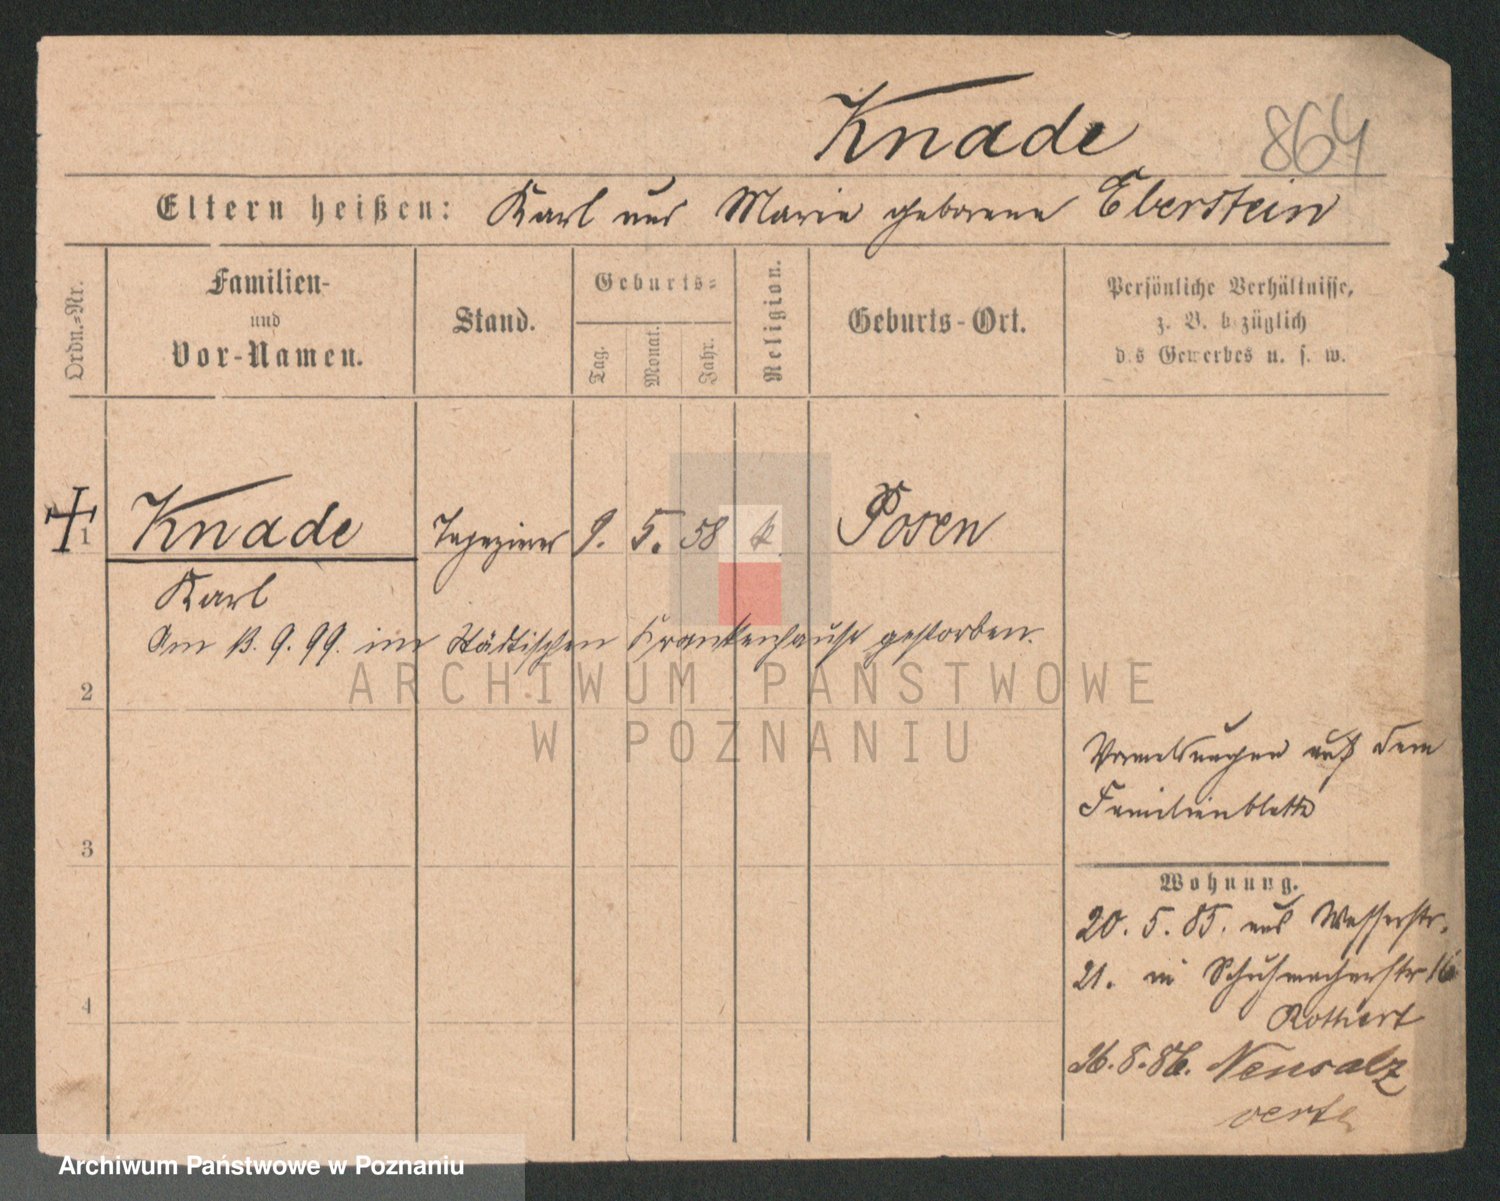 Knade 864
Eltern heißen: Karl und Marie geborene Eberstein
Ordn.-Nr.
Familien-
und
Vor-Namen.
Stand.
Geburts-
Tag.
Monat.
Jahr.
Religion.
Geburts-Ort.
Persönliche Verhältnisse,
z. B. bezüglich
des Gewerbes u. s. w.
1 Knade Tapezierer 9. 5. 58 k. Posen
Karl
Am 13. 9. 99. im Städtischen Krankenhause gestorben.
2
ARCHIWUM PAŃSTWOWE
W POZNANIU
Vormeldungen auf dem
Familienblatte
3
Wohnung.
20. 5. 85. aus Wasserstr.
21. in Schuhmacherstr 16
4
Rothert
26. 8. 86. Neusalz
verte
Archiwum Państwowe w Poznaniu